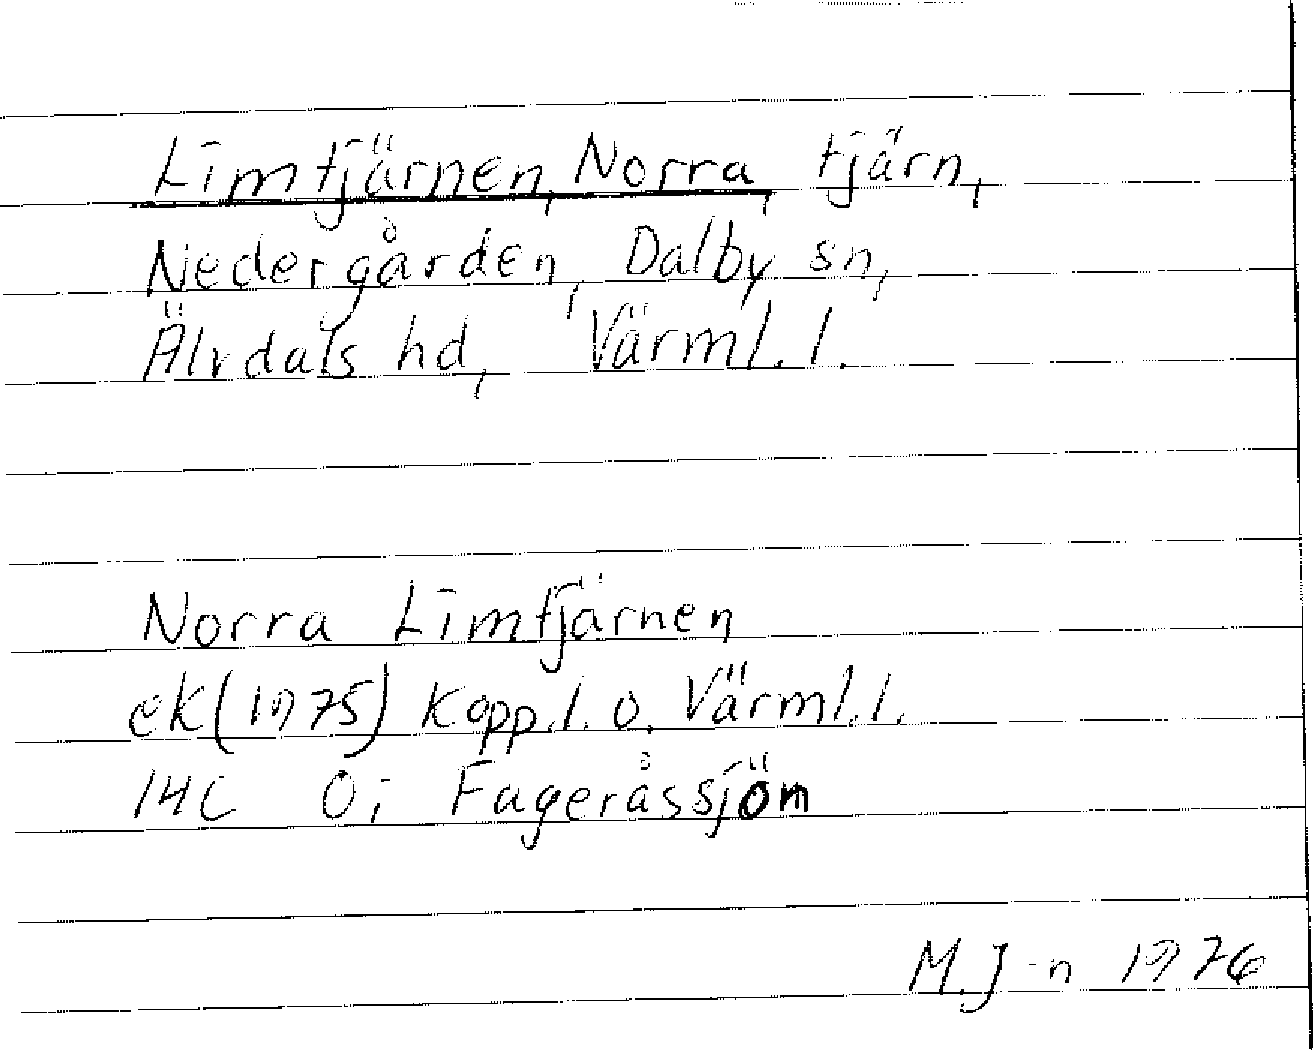 Limtjärnen, Norra, tjärn,
Nedergården, Dalby sn,
Älvdals hd, Värml. l.
Norra Limtjärnen
ek (1975) Kopp. l. o. Värml. l.
14C 0i Fageråssjön
M. J-n 1976